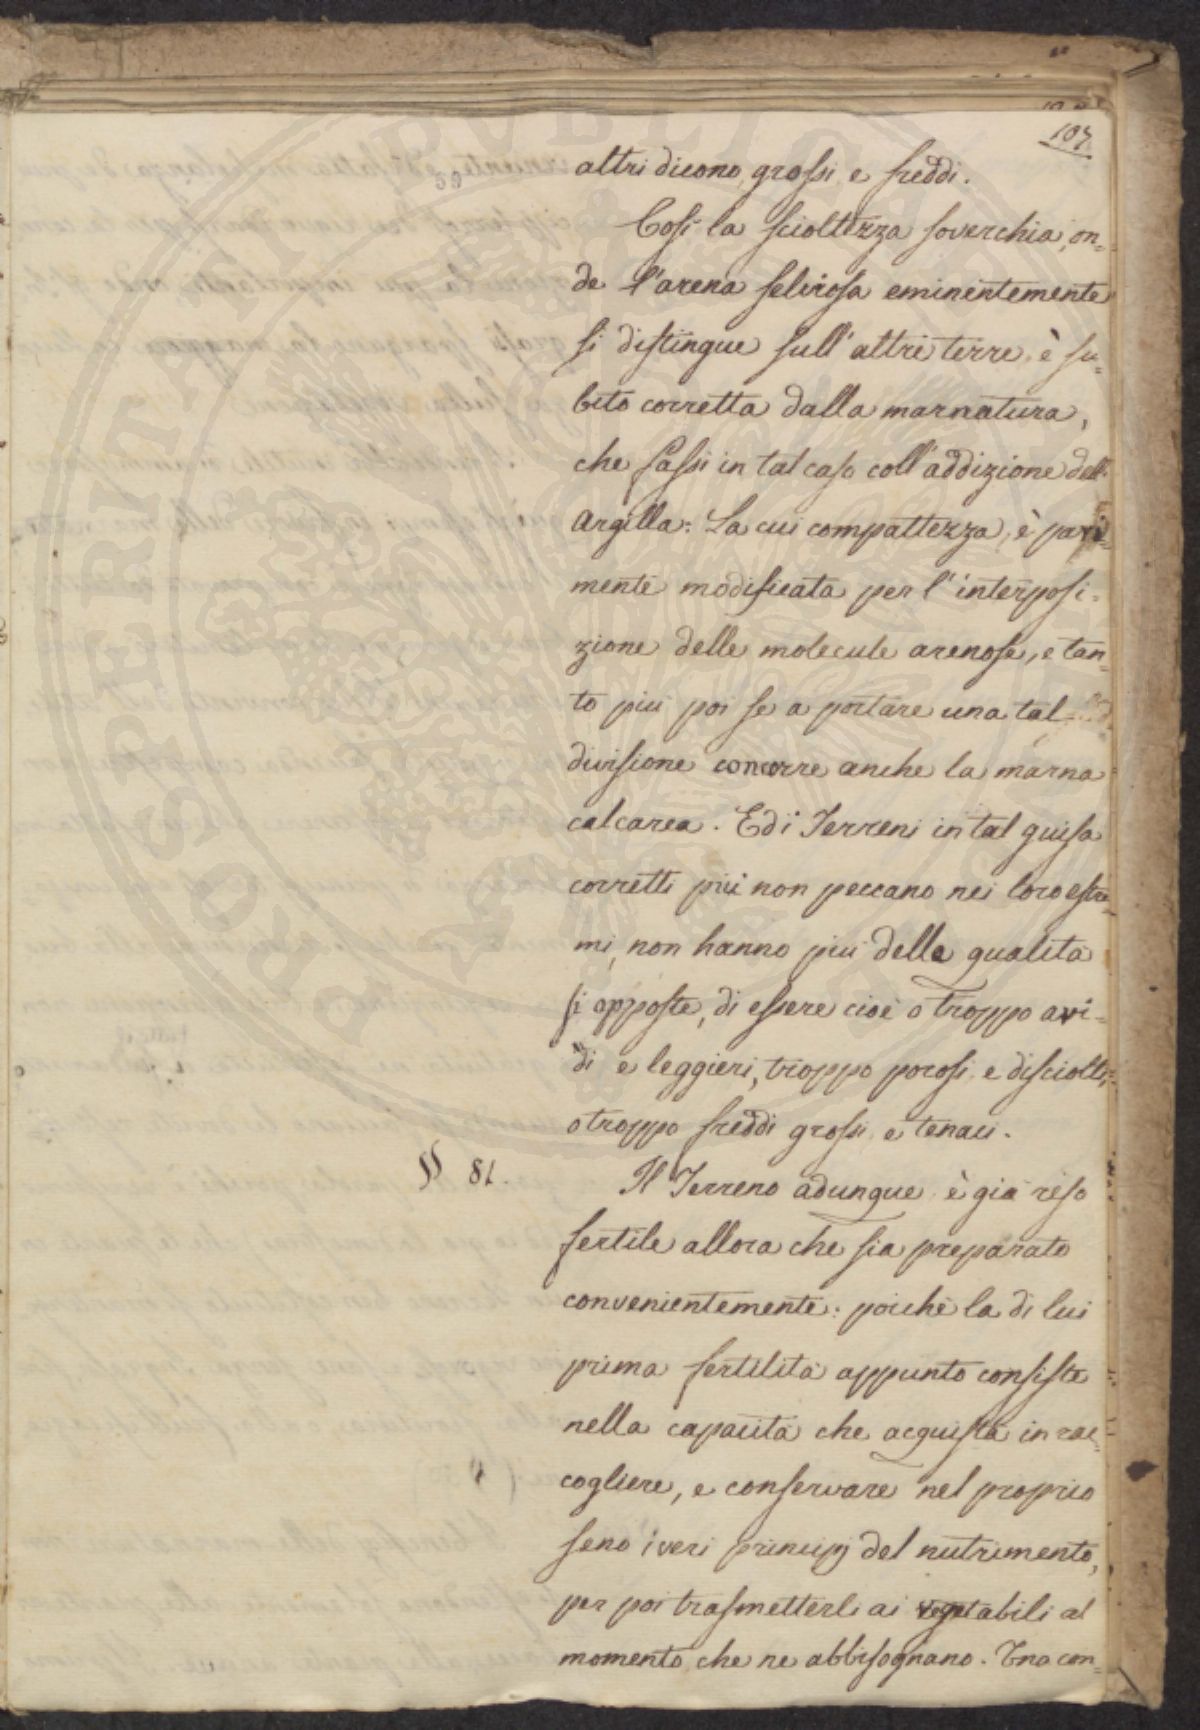 107.
altri dicono, grossi, e freddi.
Così la scioltezza soverchia, on=
de l'arena selviosa eminentemente
si distingue sull'altre terre, è su=
bito corretta dalla marnatura,
che fassi in tal caso coll'addizione dell'
Argilla: La cui compattezza, è pari=
mente modificata per l'interposi=
zione delle molecule arenose, e tan=
to piu poi se a portare una tal
divisione concorre anche la marna
calcarea. Ed i Terreni in tal guisa
corretti più non peccano nei loro estre=
mi, non hanno piu delle qualità
si opposte, di essere cioè o troppo avi=
di e leggieri, troppo porosi, e disciolti,
o troppo freddi grossi, e tenaci.
§§ 81.
Il Terreno adunque è già reso
fertile allora che sia preparato
convenientemente: poichè la di lui
prima fertilità appunto consiste
nella capacità che acquista in rac=
cogliere, e conservare nel proprio
seno i veri principj del nutrimento,
per poi trasmetterli ai vegetabili al
momento, che ne abbisognano. Una con=